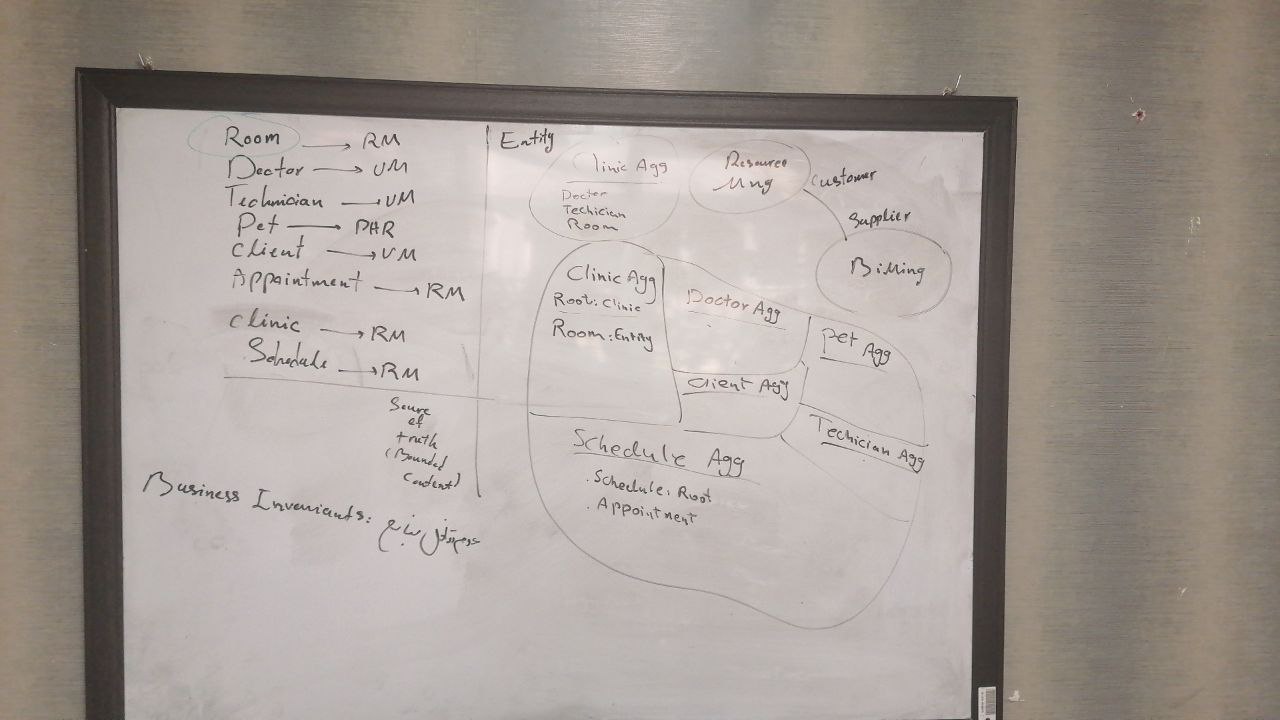 Room → RM
Doctor → UM
Technician → UM
Pet → PHR
Client → UM
Appointment → RM
Clinic → RM
Schedule → RM
Soure
of
truth
(Bounded
Context)
Business Invenients:
Entity
Clinic Agg
Doctor
Techician
Room
Resource
Mng
Customer
Supplier
Billing
Clinic Agg
Root: Clinic
Room: Entity
Doctor Agg
Client Agg
Pet Agg
Techician Agg
Schedule Agg
. Schedule: Root
. Appointment